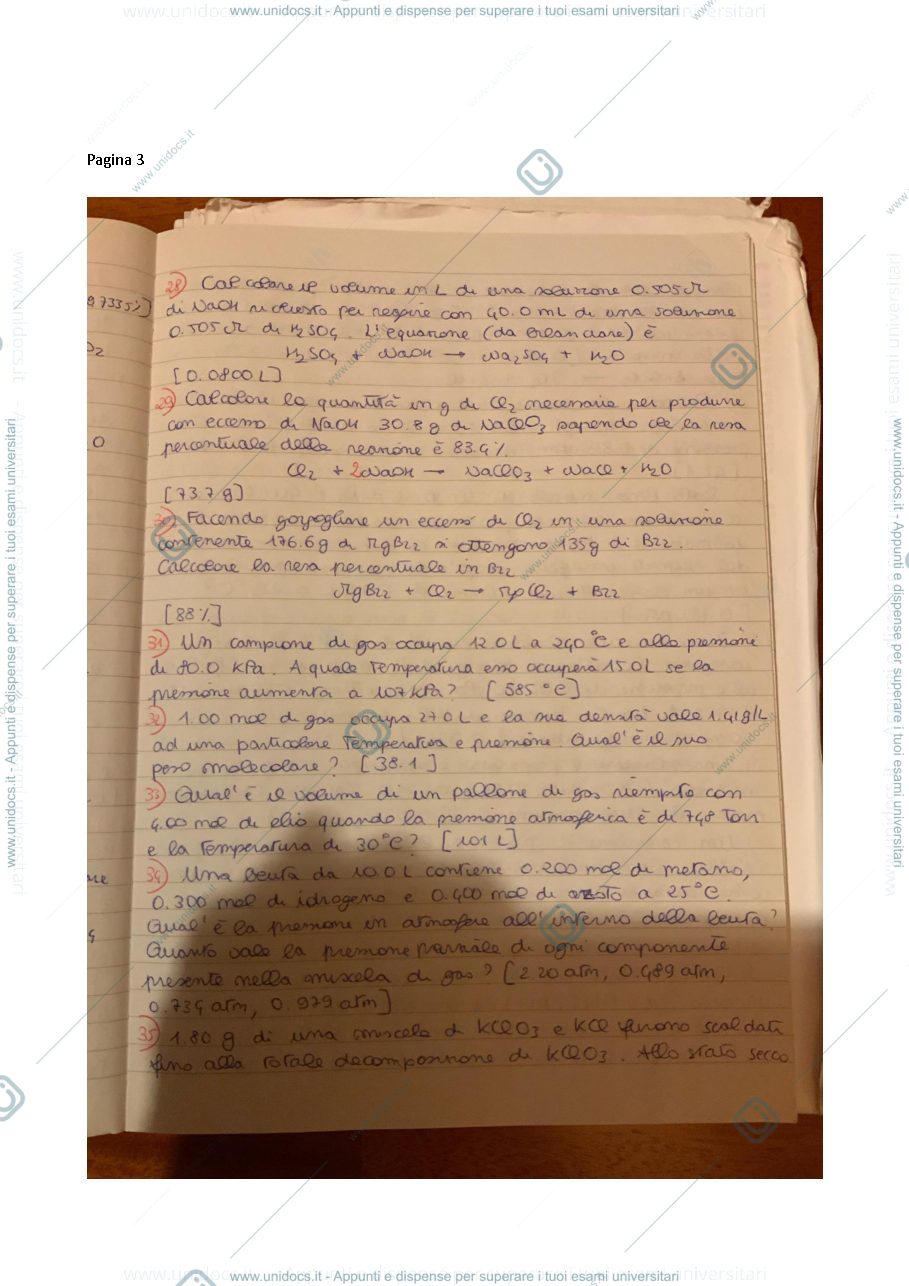 www.unidocs.it - Appunti e dispense per superare i tuoi esami universitari
Pagina 3
9.7335%]
O2
O
28) Calcolare il volume in L di una soluzione 0.505 M
di NaOH richiesto per reagire con 40.0 mL di una soluzione
0.505 M di H2SO4. L'equazione (da bilanciare) è
H2SO4 + NaOH → Na2SO4 + H2O
[0.0800 L]
29) Calcolare la quantità in g di Cl2 necessaria per produrre
con eccesso di NaOH 30.8 g di NaClO3 sapendo che la resa
percentuale della reazione è 83.4%.
Cl2 + 2NaOH → NaClO3 + NaCl + H2O
[73.7 g]
30) Facendo gorgogliare un eccesso di Cl2 in una soluzione
contenente 176.6 g di MgBr2 si ottengono 135 g di Br2.
Calcolare la resa percentuale in Br2
MgBr2 + Cl2 → MgCl2 + Br2
[88%]
31) Un campione di gas occupa 12.0 L a 240 °C e alla pressione
di 80.0 KPa. A quale Temperatura esso occuperà 15.0 L se la
pressione aumenta a 107 kPa? [585 °C]
32) 1.00 mol di gas occupa 27.0 L e la sua densità vale 1.41 g/L
ad una particolare Temperatura e pressione. Qual'è il suo
peso molecolare? [38.1]
33) Qual'è il volume di un pallone di gas riempito con
4.00 mol di elio quando la pressione atmosferica è di 748 Torr
e la temperatura di 30°C? [101 L]
34) Una beuta da 10.0 L contiene 0.200 mol di metano,
0.300 mol di idrogeno e 0.400 mol di azoto a 25°C.
Qual'è la pressione in atmosfere all'interno della beuta?
Quanto vale la pressione parziale di ogni componente
presente nella miscela di gas? [2.20 atm, 0.489 atm,
0.734 atm, 0.979 atm]
35) 1.80 g di una miscela di KClO3 e KCl furono scaldati
fino alla totale decomposizione di KClO3. Allo stato secco
www.unidocs.it - Appunti e dispense per superare i tuoi esami universitari